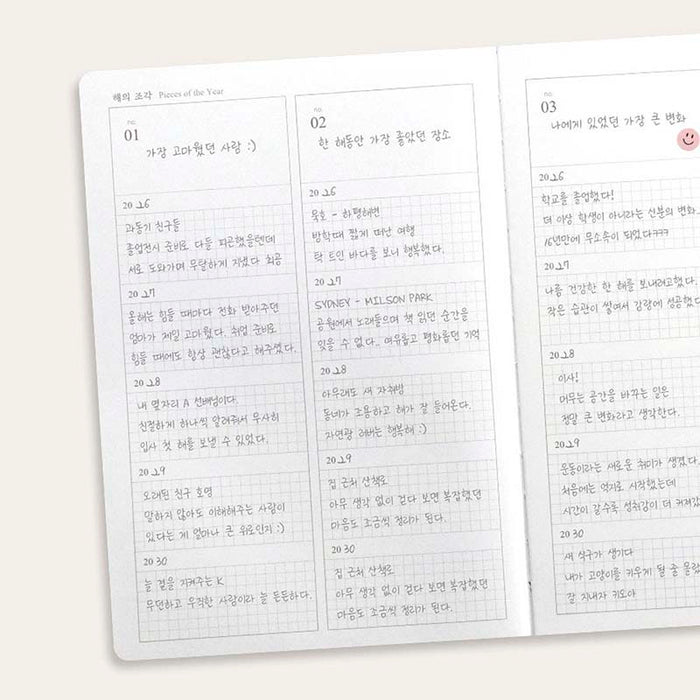 해의 조각 Pieces of the Year
no.
01
가장 고마웠던 사람 :)
2026
과동기 친구들
졸업전시 준비로 다들 피곤했을텐데
서로 도와가며 무탈하게 지냈다 최공
2027
올해는 힘들 때마다 전화 받아주던
엄마가 제일 고마웠다. 취업 준비로
힘들 때에도 항상 괜찮다고 해주셨다.
2028
내 옆자리 A 선배님이다.
친절하게 하나씩 알려줘서 무사히
입사 첫 해를 보낼 수 있었다.
2029
오래된 친구 호영
말하지 않아도 이해해주는 사람이
있다는 게 얼마나 큰 위로인지 :)
2030
늘 곁을 지켜주는 K
무던하고 우직한 사람이라 늘 든든하다.
no.
02
한 해동안 가장 좋았던 장소
2026
묵호 - 하평해변
방학때 짧게 떠난 여행
탁 트인 바다를 보니 행복했다.
2027
SYDNEY - MILSON PARK
공원에서 노래들으며 책 읽던 순간을
잊을 수 없다.. 여유롭고 평화롭던 기억
2028
아무래도 새 자취방
동네가 조용하고 해가 잘 들어온다.
자연광 러버는 행복해 :)
2029
집 근처 산책로
아무 생각 없이 걷다 보면 복잡했던
마음도 조금씩 정리가 된다.
2030
집 근처 산책로
아무 생각 없이 걷다 보면 복잡했던
마음도 조금씩 정리가 된다.
no.
03
나에게 있었던 가장 큰 변화
2026
학교를 졸업했다!
더 이상 학생이 아니라는 신분의 변화..
16년만에 무소속이 되었다ㅋㅋㅋ
2027
나름 건강한 한 해를 보내려고했다.
작은 습관이 쌓여서 감량에 성공했다
2028
이사!
머무는 공간을 바꾸는 일은
정말 큰 변화라고 생각한다.
2029
운동이라는 새로운 취미가 생겼다.
처음에는 억지로 시작했는데
시간이 갈수록 성취감이 더 커져갔
2030
새 식구가 생기다
내가 고양이를 키우게 될 줄 몰랐
잘 지내자 키오야